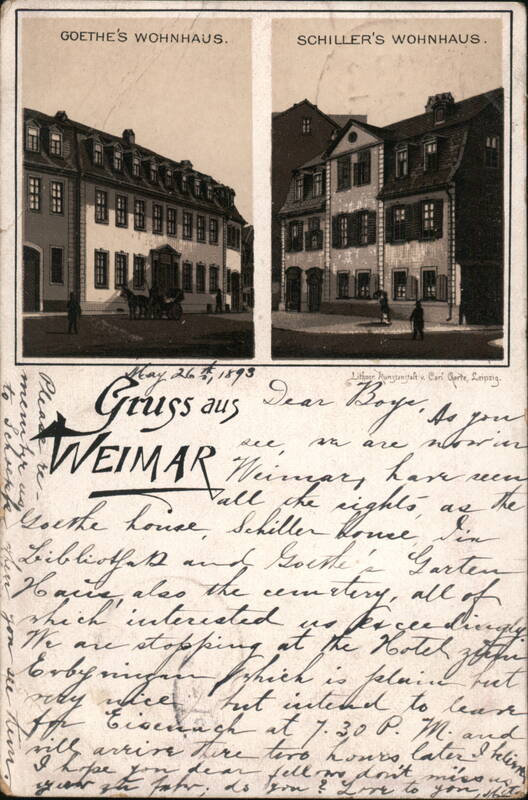 GOETHE'S WOHNHAUS.
SCHILLER'S WOHNHAUS.
Lithogr. Kunstanstalt v. Carl Garte, Leipzig.
May 26th, 1893
Gruss aus
WEIMAR
Dear Boys,
As you
see, we are now in
Weimar, have seen
all the sights, as the
Goethe house, Schiller house, die
Bibliothek and Goethe's Garten
Haus, also the cemetery, all of
which interested us exceedingly
We are stopping at the Hotel zum
Erbprinzen which is plain but
very nice but intend to leave
for Eisenach at 7.30 P. M. and
will arrive there two hours later. I believe
I hope you dear fellows don't miss us
very far, do you? Love to you,
Please re-
member us
to
when you see him.